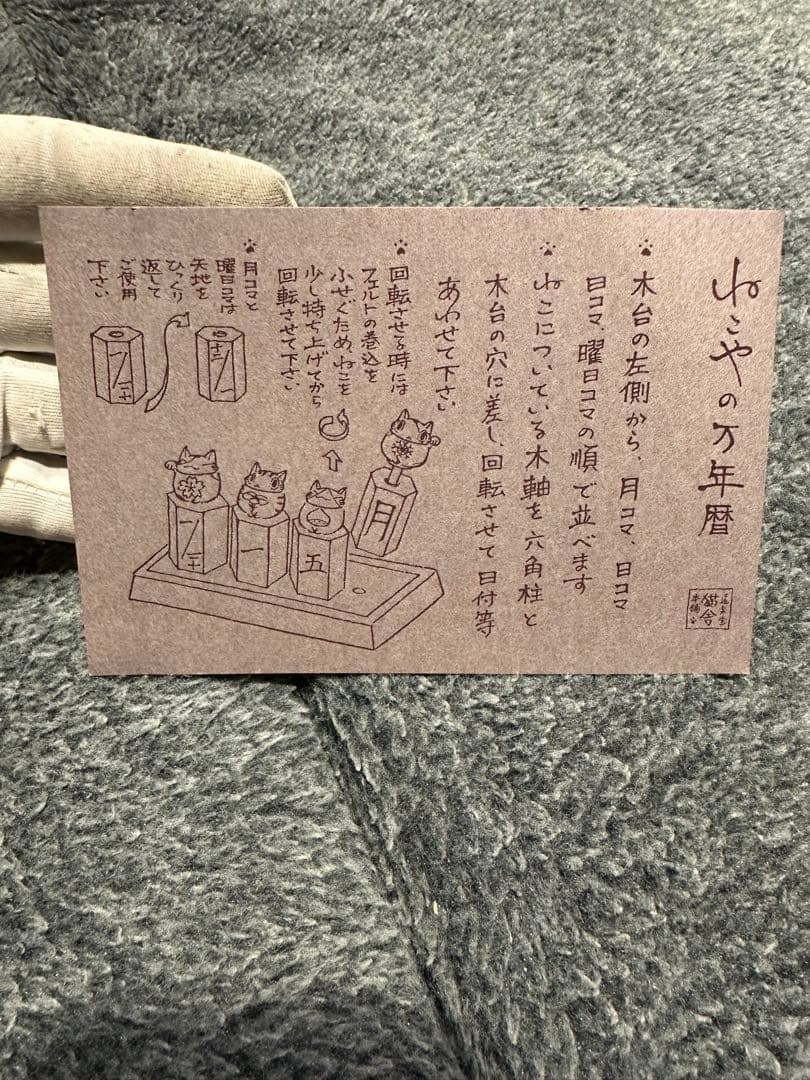 ねこやの万年暦
猫舎
本舗
木台の左側から、月コマ、日コマ
日コマ、曜日コマの順で並べます
ねこについている木軸を六角柱と
木台の穴に差し、回転させて日付等
あわせて下さい
回転させる時には
フェルトの巻込を
ふせぐため、ねこを
少し持ち上げてから
回転させて下さい
月コマと
曜日コマは
天地を
ひっくり
返して
ご使用
下さい
月
一
五